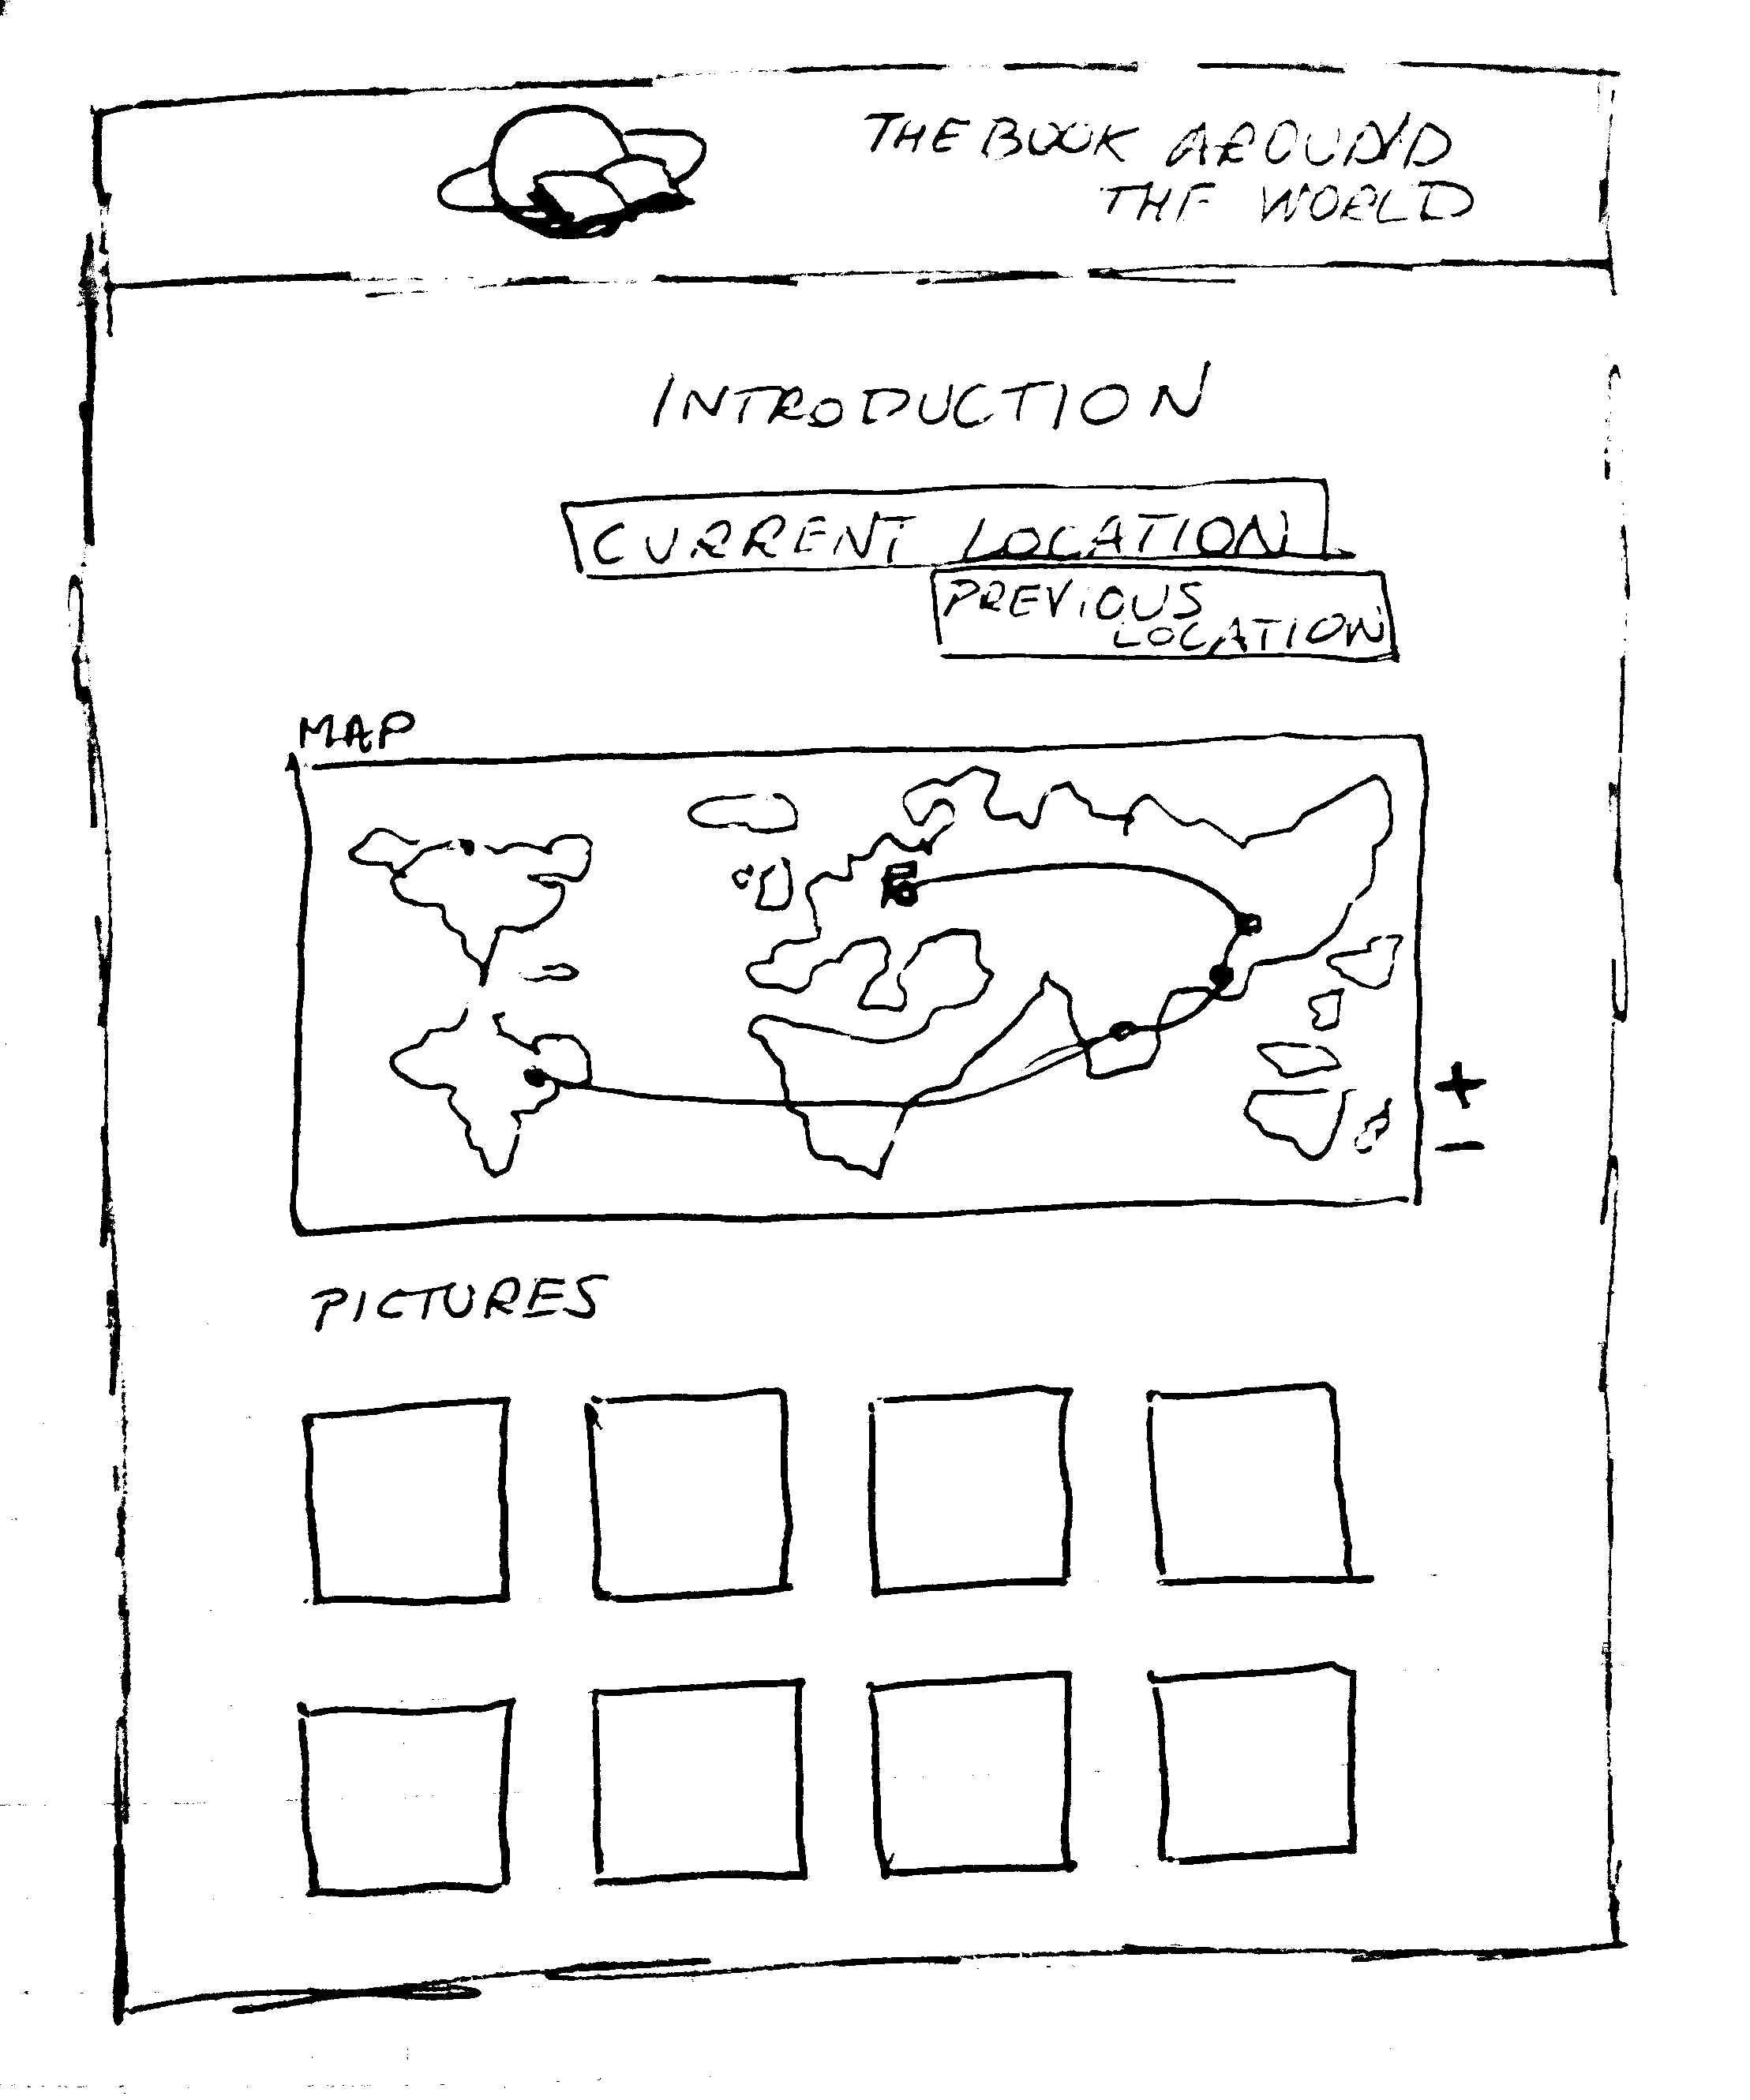 THE BOOK AROUND
THE WORLD
INTRODUCTION
CURRENT LOCATION
PREVIOUS
LOCATION
MAP
+
-
PICTURES